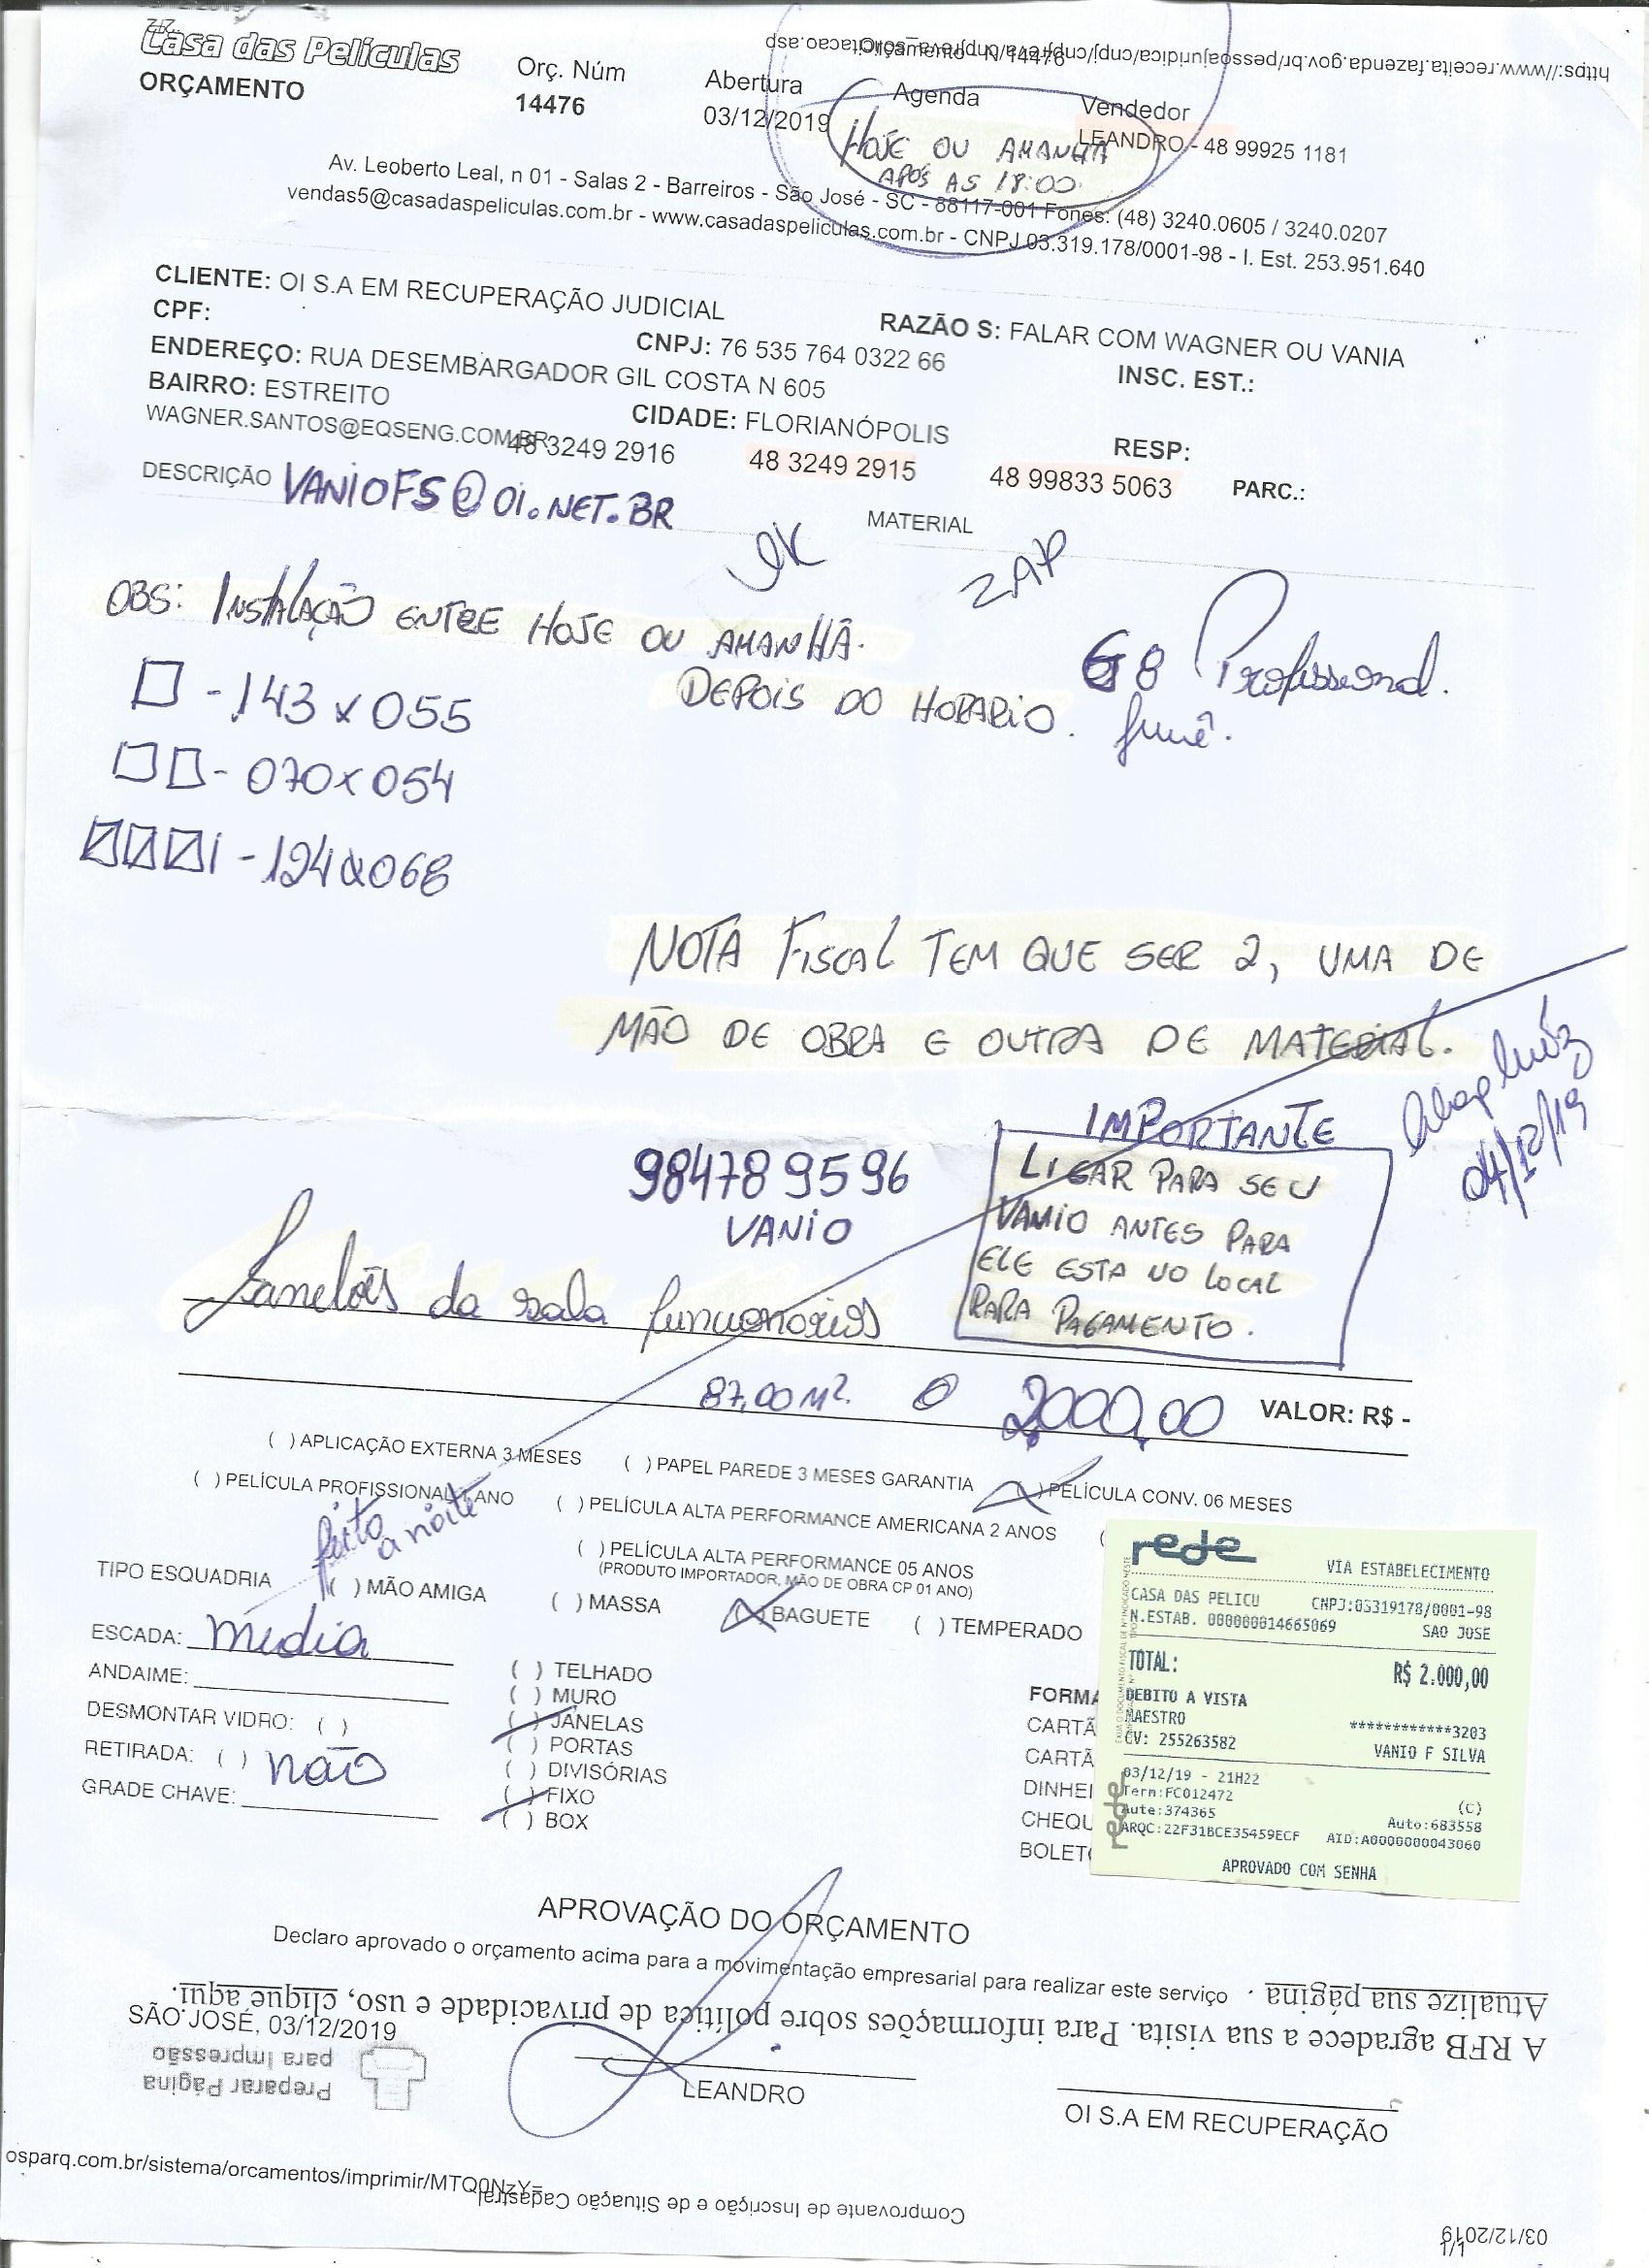 Casa das Películas
ORÇAMENTO
Orç. Núm
14476
Abertura
03/12/2019
Agenda
HOJE OU AMANHÃ
APÓS AS 18:00
Vendedor
LEANDRO - 48 99925 1181
Av. Leoberto Leal, n 01 - Salas 2 - Barreiros - São José - SC - 88117-001 Fones: (48) 3240.0605 / 3240.0207
vendas5@casadaspeliculas.com.br - www.casadaspeliculas.com.br - CNPJ 03.319.178/0001-98 - I. Est. 253.951.640
CLIENTE: OI S.A EM RECUPERAÇÃO JUDICIAL
RAZÃO S: FALAR COM WAGNER OU VANIA
CPF:
CNPJ: 76 535 764 0322 66
INSC. EST.:
ENDEREÇO: RUA DESEMBARGADOR GIL COSTA N 605
BAIRRO: ESTREITO
CIDADE: FLORIANÓPOLIS
RESP:
WAGNER.SANTOS@EQSENG.COM.BR
48 3249 2916
48 3249 2915
48 99833 5063
PARC.:
DESCRIÇÃO
VANIOFS@OI.NET.BR
MATERIAL
OK
ZAP
OBS: INSTALAÇÃO ENTRE HOJE OU AMANHÃ.
DEPOIS DO HORARIO.
G8 Profissional.
fumê.
- 143 x 055
- 070 x 054
- 124 x 068
NOTA FISCAL TEM QUE SER 2, UMA DE
MÃO DE OBRA E OUTRA DE MATERIAL.
04/12/19
984789596
VANIO
IMPORTANTE
LIGAR PARA SEU
VANIO ANTES PARA
ELE ESTA NO LOCAL
PARA PAGAMENTO.
Janelões da sala funcionarios
87,00 M²
2.000,00
VALOR: R$ -
( ) APLICAÇÃO EXTERNA 3 MESES
( ) PAPEL PAREDE 3 MESES GARANTIA
( ) PELÍCULA CONV. 06 MESES
( ) PELÍCULA PROFISSIONAL 1 ANO
( ) PELÍCULA ALTA PERFORMANCE AMERICANA 2 ANOS
(
feito
a noite
( ) PELÍCULA ALTA PERFORMANCE 05 ANOS
(PRODUTO IMPORTADOR, MÃO DE OBRA CP 01 ANO)
TIPO ESQUADRIA
( ) MÃO AMIGA
( ) MASSA
( ) BAGUETE
( ) TEMPERADO
ESCADA: media
ANDAIME:
DESMONTAR VIDRO: ( )
RETIRADA: ( ) não
GRADE CHAVE:
( ) TELHADO
( ) MURO
( ) JANELAS
( ) PORTAS
( ) DIVISÓRIAS
( ) FIXO
( ) BOX
FORMA
CARTÃ
CARTÃ
DINHEI
CHEQU
BOLET
rede
VIA ESTABELECIMENTO
CASA DAS PELICU CNPJ:03319178/0001-98
N.ESTAB. 000000014665069 SAO JOSE
TOTAL: R$ 2.000,00
DEBITO A VISTA
MAESTRO ************3203
CV: 255263582 VANIO F SILVA
03/12/19 - 21H22
Term:FC012472 (C)
Aute:374365 Auto:683558
ARQC:22F31BCE35459ECF AID:A0000000043060
APROVADO COM SENHA
rede
APROVAÇÃO DO ORÇAMENTO
Declaro aprovado o orçamento acima para a movimentação empresarial para realizar este serviço .
SÃO JOSÉ, 03/12/2019
LEANDRO
OI S.A EM RECUPERAÇÃO
osparq.com.br/sistema/orcamentos/imprimir/MTQ0NzY=
1/1
03/12/2019
Comprovante de Inscrição e de Situação Cadastral
Preparar Página
para Impressão
A RFB agradece a sua visita. Para informações sobre política de privacidade e uso, clique aqui.
Atualize sua página